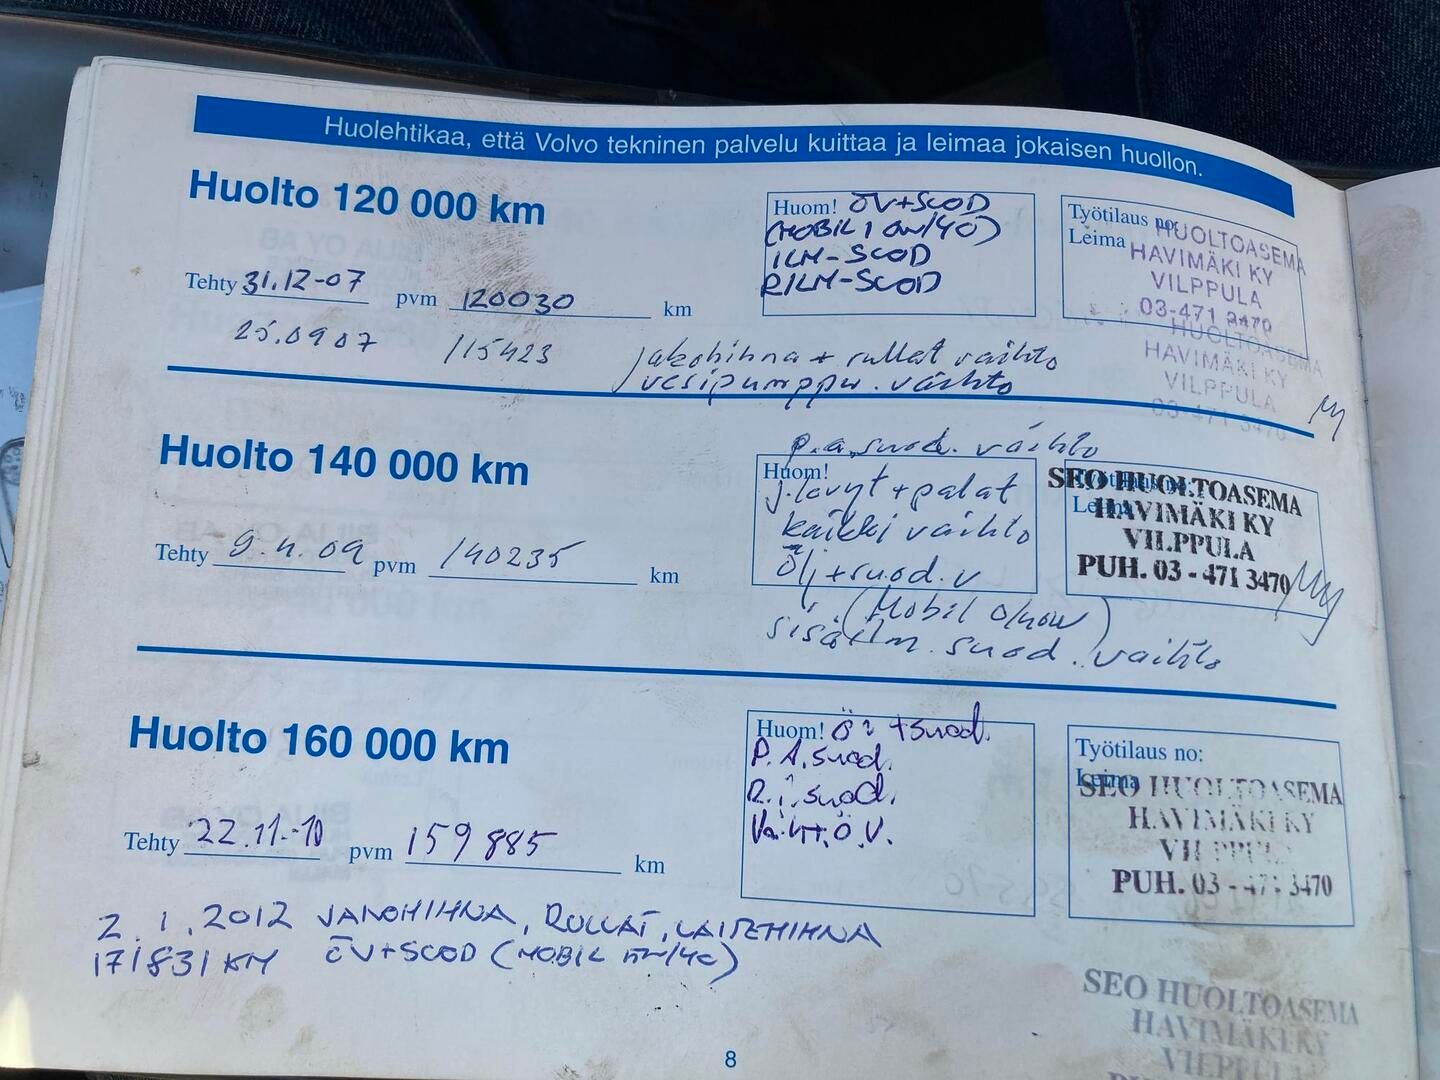 Huolehtikaa, että Volvo tekninen palvelu kuittaa ja leimaa jokaisen huollon.
Huolto 120 000 km
Huom! ÖV+SUOD
(MOBIL 1 0W/40)
ILM-SUOD
RILM-SUOD
Työtilaus no:
Leima
HUOLTOASEMA
HAVIMÄKI KY
VILPPULA
03-471 3470
Tehty 31.12-07 pvm 120030 km
HUOLTOASEMA
HAVIMÄKI KY
VILPPULA
03-471 3470
25.0907 115423 jakohihna + rullat vaihto
vesipumppu. vaihto
Huolto 140 000 km
p.a.suod. vaihto
Huom!
j.levyt + palat
kaikki vaihto
Ölj+suod.v
(Mobil 0/40W)
sisäilm. suod. vaihto
Työtilaus no:
Leima
SEO HUOLTOASEMA
HAVIMÄKI KY
VILPPULA
PUH. 03 - 471 3470
Tehty 9.4.09 pvm 140235 km
Huolto 160 000 km
Huom! Ö. +suod.
P.A.suod.
R.i.suod.
Vaiht.Ö.V.
Työtilaus no:
Leima
SEO HUOLTOASEMA
HAVIMÄKI KY
VILPPULA
PUH. 03 - 471 3470
Tehty 22.11.-10 pvm 159885 km
2.1.2012 JAKOHIHNA, RULLAT, LAITEHIHNA
171831 KM ÖV+SUOD (MOBIL 0W/40)
SEO HUOLTOASEMA
HAVIMÄKI KY
VILPPULA
8